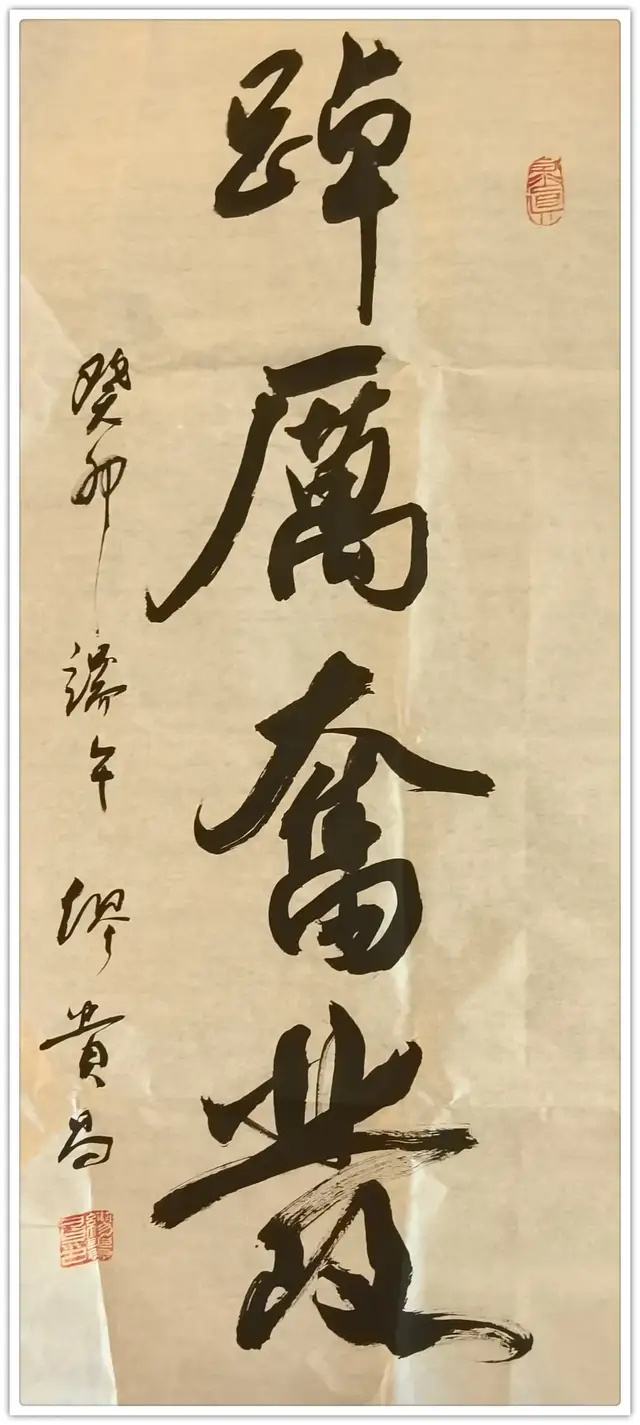 踔厲奮發
癸卯端午 繆貴昌